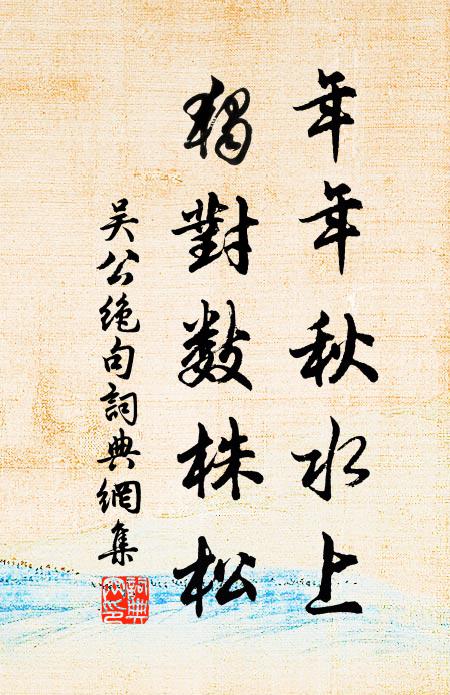 年年秋水上
獨對數株松
吴公绝句詞典網集